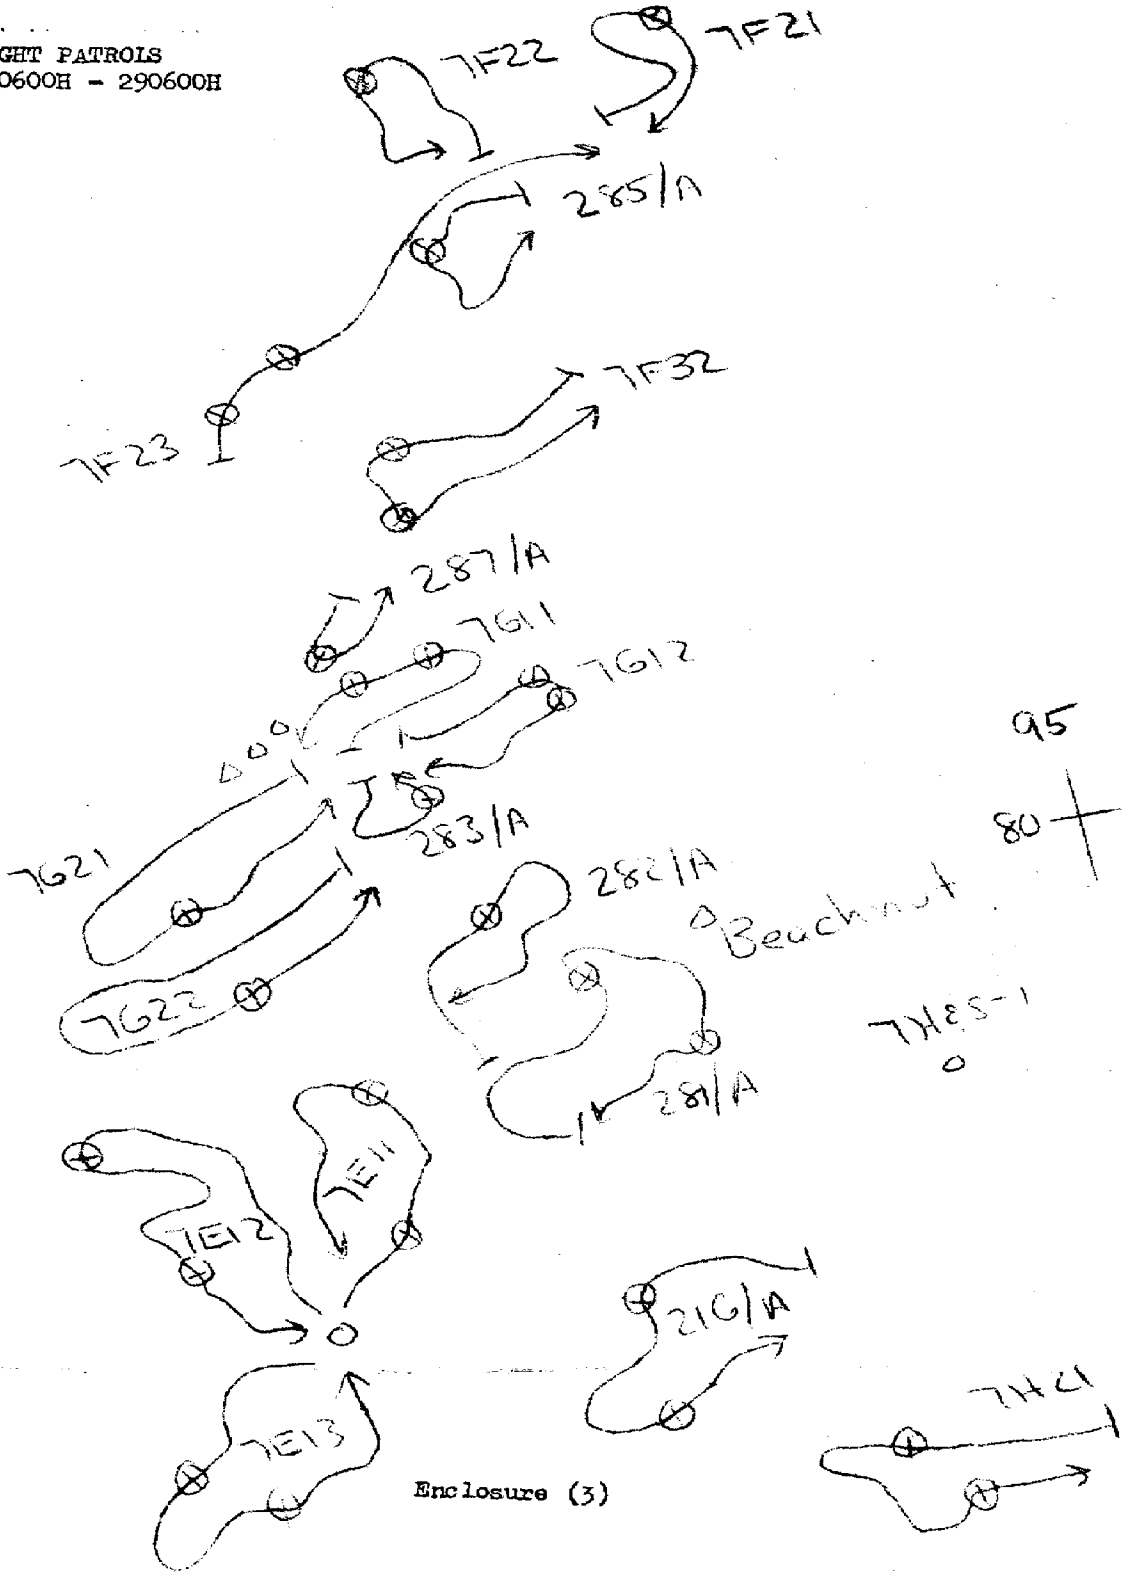 GHT PATROLS
0600H - 290600H
7F22
7F21
285/A
7F32
7F23
287/A
7G11
7G12
95
80
283/A
7G21
282/A
Beachnut
7G22
281/A
7E11
7E12
21G/A
7H21
7E13
Enclosure (3)